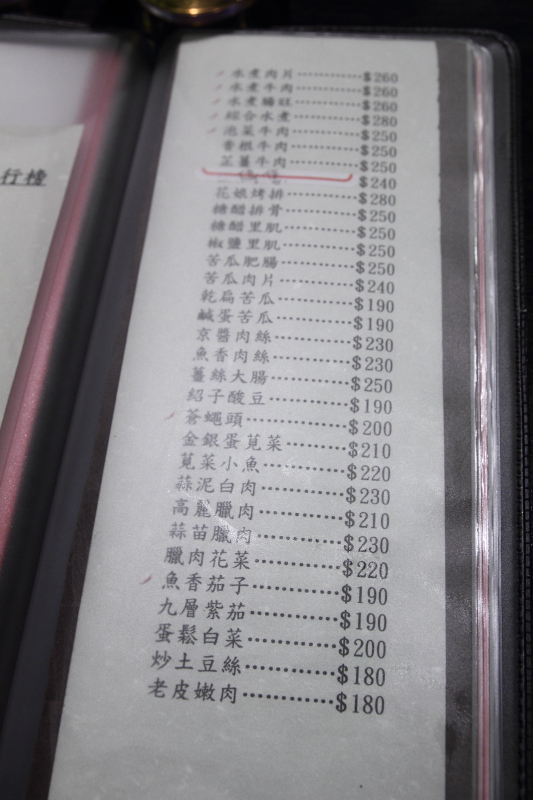 行榜
水煮肉片…………$260
水煮牛肉…………$260
水煮腸旺…………$260
綜合水煮…………$280
泡菜牛肉…………$250
香根牛肉…………$250
芷薑牛肉…………$250
…………$240
花娘烤排…………$280
糖醋排骨…………$250
糖醋里肌…………$250
椒鹽里肌…………$250
苦瓜肥腸…………$250
苦瓜肉片…………$240
乾扁苦瓜…………$190
鹹蛋苦瓜…………$190
京醬肉絲…………$230
魚香肉絲…………$230
薑絲大腸…………$250
紹子酸豆…………$190
蒼蠅頭…………$200
金銀蛋莧菜…………$210
莧菜小魚…………$220
蒜泥白肉…………$230
高麗臘肉…………$210
蒜苗臘肉…………$230
臘肉花菜…………$220
魚香茄子…………$190
九層紫茄…………$190
蛋鬆白菜…………$200
炒土豆絲…………$180
老皮嫩肉…………$180